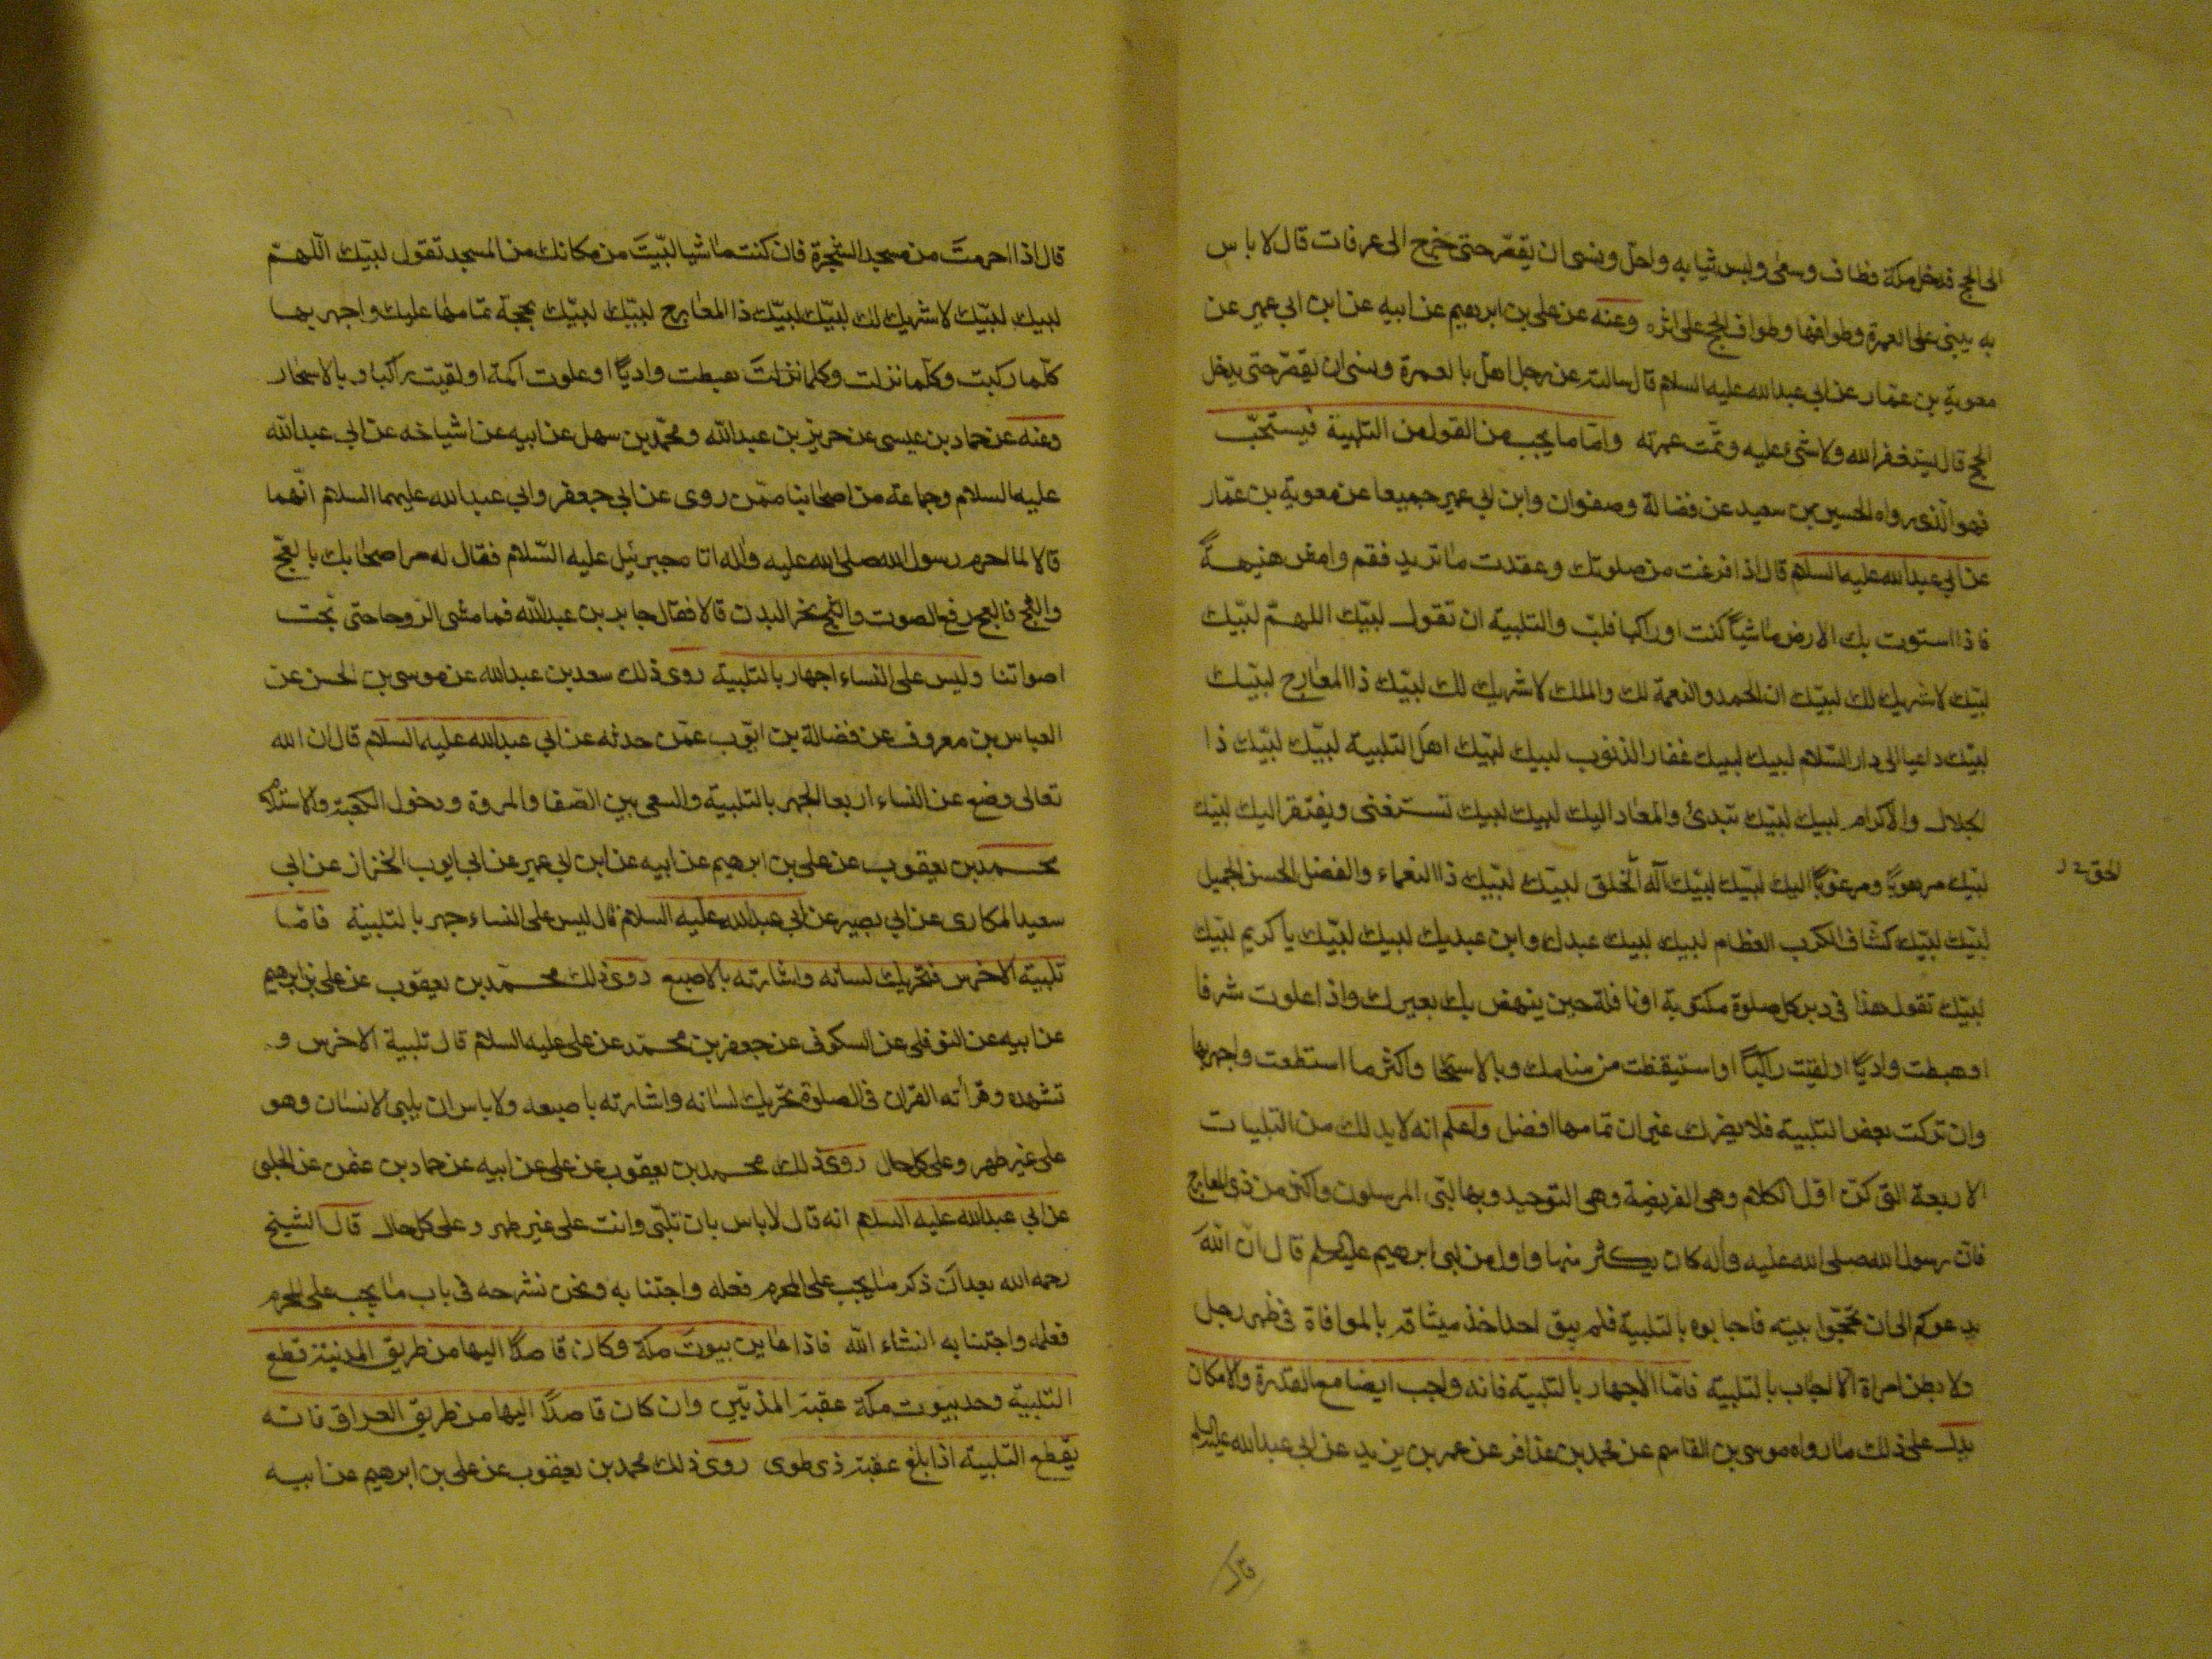 الى الحج فدخل مكة فطاف وسعى ولبس ثيابه واحل ونسى ان يقصر حتى خرج الى عرفات قال لا باس
به يبنى على العمرة وطوافها وطواف الحج على اثره وعنه عن على بن ابرهيم عن ابيه عن ابن ابي عمير عن
معوية بن عمار عن ابي عبد الله عليه السلام قال سالته عن رجل اهل بالعمرة ونسى ان يقصر حتى يدخل
الحج قال يستغفر الله ولا شئ عليه وتمت عمرته واما ما يجب من القول من التلبية فيستحب
فهو الذى رواه الحسين بن سعيد عن فضالة وصفوان وابن ابي عمير جميعا عن معوية بن عمار
عن ابي عبد الله عليه السلام قال اذا فرغت من صلوتك وعقدت ما تريد فقم وامض هنيهة
فاذا استوت بك الارض ماشيا كنت او راكبا فلب والتلبية ان تقول لبيك اللهم لبيك
لبيك لا شريك لك لبيك ان الحمد والنعمة لك والملك لا شريك لك لبيك ذا المعارج لبيك
لبيك داعيا الى دار السلام لبيك لبيك غفار الذنوب لبيك لبيك اهل التلبية لبيك لبيك ذا
الجلال والاكرام لبيك لبيك تبدئ والمعاد اليك لبيك لبيك تستغنى ويفتقر اليك لبيك
لبيك مرهوبا ومرغوبا اليك لبيك لبيك آله الخلق لبيك لبيك ذا النعماء والفضل الحسن الجميل
الحق
لبيك لبيك كشاف الكرب العظام لبيك لبيك عبدك وابن عبديك لبيك لبيك يا كريم لبيك
لبيك تقول هذا فى دبر كل صلوة مكتوبة او نافلة حين ينهض بك بعيرك واذا علوت شرفا
او هبطت واديا او لقيت راكبا او استيقظت من منامك وبالاسحار واكثر ما استطعت واجهر بها
وان تركت بعض التلبية فلا يضرك غير ان تمامها افضل واعلم انه لابد لك من التلبيات
الاربعة التى كن اول الكلام وهى الفريضة وهى التوحيد وبها لبى المرسلون واكثر من ذى المعارج
فان رسول الله صلى الله عليه واله كان يكثر منها واول من لبى ابرهيم عليه السلم قال ان الله
يدعوكم الى ان تحجوا بيته فاجابوه بالتلبية فلم يبق احد اخذ ميثاقه بالموافاة فى ظهر رجل
ولا بطن امراة الا اجاب بالتلبية فاما الاجهار بالتلبية فانه واجب ايضا مع القدرة والامكان
يدل على ذلك ما رواه موسى بن القاسم عن محمد بن عذافر عن عمر بن يزيد عن ابي عبد الله عليه السلم
قال
قال اذا احرمت من مسجد الشجرة فان كنت ماشيا لبيت من مكانك من المسجد تقول لبيك اللهم
لبيك لبيك لا شريك لك لبيك لبيك ذا المعارج لبيك لبيك بحجة تمامها عليك واجهر بها
كلما ركبت وكلما نزلت وكلما نزلت هبطت واديا او علوت اكمة او لقيت راكبا وبالاسحار
وعنه عن حماد بن عيسى عن حريز بن عبد الله ومحمد بن سهل عن ابيه عن اشياخه عن ابي عبد الله
عليه السلام وجماعة من اصحابنا ممن روى عن ابي جعفر وابي عبد الله عليهما السلام انهما
قالا لما احرم رسول الله صلى الله عليه واله اتاه جبرئيل عليه السلام فقال له مر اصحابك بالعج
والثج فالعج رفع الصوت والثج نحر البدن قالا فقال جابر بن عبد الله فما مشى الروحا حتى بحت
اصواتنا وليس على النساء اجهار بالتلبية روى ذلك سعد بن عبد الله عن موسى بن الحسن عن
العباس بن معروف عن فضالة بن ايوب عمن حدثه عن ابي عبد الله عليه السلام قال ان الله
تعالى وضع عن النساء اربعا الجهر بالتلبية والسعى بين الصفا والمروة ودخول الكعبة والاستلام
محمد بن يعقوب عن على بن ابرهيم عن ابيه عن ابن ابي عمير عن ابي ايوب الخزاز عن ابي
سعيد المكارى عن ابي بصير عن ابي عبد الله عليه السلام قال ليس على النساء جهر بالتلبية فاما
تلبية الاخرس فتحريك لسانه واشارته بالاصبع روى ذلك محمد بن يعقوب عن على بن ابرهيم
عن ابيه عن النوفلى عن السكونى عن جعفر بن محمد عن على عليه السلام قال تلبية الاخرس و
تشهده وقرأته القران فى الصلوة تحريك لسانه واشارته باصبعه ولا باس ان يلبى الانسان وهو
على غير طهر وعلى كل حال روى ذلك محمد بن يعقوب عن على عن ابيه عن حماد بن عثمن عن الحلبى
عن ابي عبد الله عليه السلام انه قال لا باس بان تلبى وانت على غير طهر وعلى كل حال قال الشيخ
رحمه الله بعد ان ذكر ما يجب على المحرم فعله واجتنابه ونحن نشرحه فى باب ما يجب على المحرم
فعله واجتنابه انشاء الله فاذا عاين بيوت مكة وكان قاصدا اليها من طريق المدنية قطع
التلبية وحد بيوت مكة عقبة المدنيين وان كان قاصدا اليها من طريق العراق فانه
يقطع التلبية اذا بلغ عقبة ذى طوى روى ذلك محمد بن يعقوب عن على بن ابرهيم عن ابيه